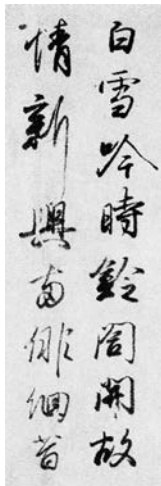 白雪吟時鈴閣開故
情新興兩俳徊昔